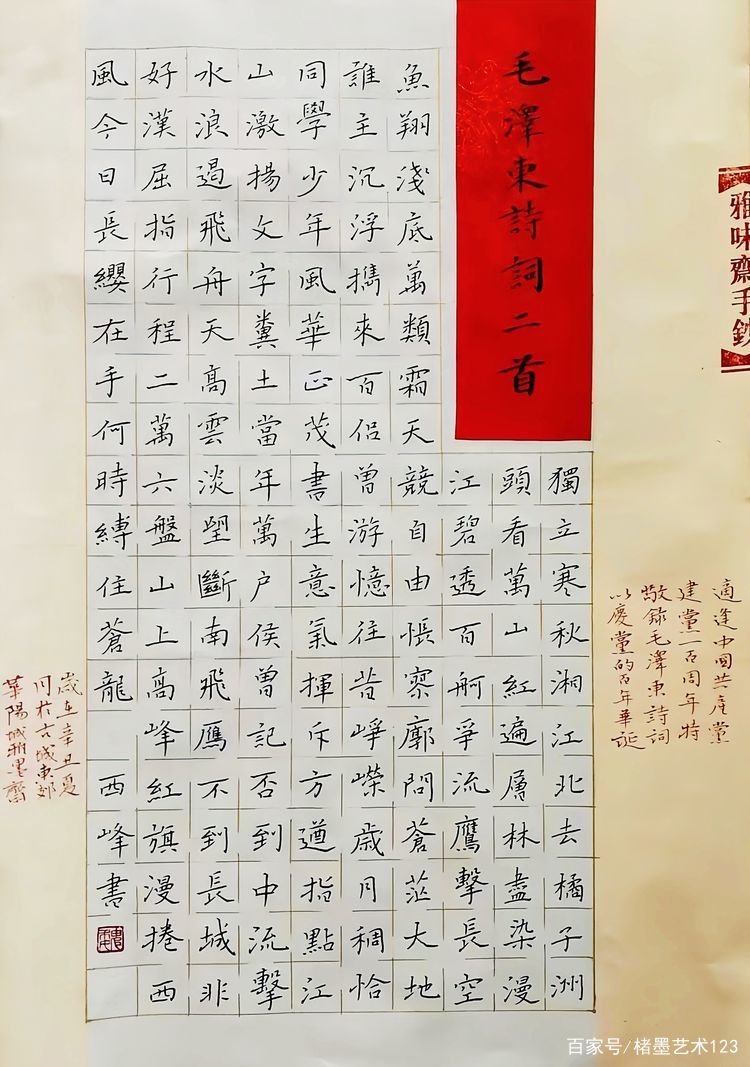 雅味齋手鈔
毛澤東詩詞二首
適逢中國共產黨
建黨一百周年特
敬錄毛澤東詩詞
以慶黨的百年華誕
獨立寒秋湘江北去橘子洲
頭看萬山紅遍層林盡染漫
江碧透百舸爭流鷹擊長空
魚翔淺底萬類霜天競自由悵寥廓問蒼茫大地
誰主沉浮攜來百侶曾游憶往昔崢嶸歲月稠恰
同學少年風華正茂書生意氣揮斥方遒指點江
山激揚文字糞土當年萬户侯曾記否到中流擊
水浪遏飛舟天高雲淡望斷南飛鴈不到長城非
好漢屈指行程二萬六盤山上高峰紅旗漫捲西
風今日長纓在手何時縛住蒼龍 西峰書
歲在辛丑夏
月於古城東郊
華陽城雅墨齋
百家号/楮墨艺术123